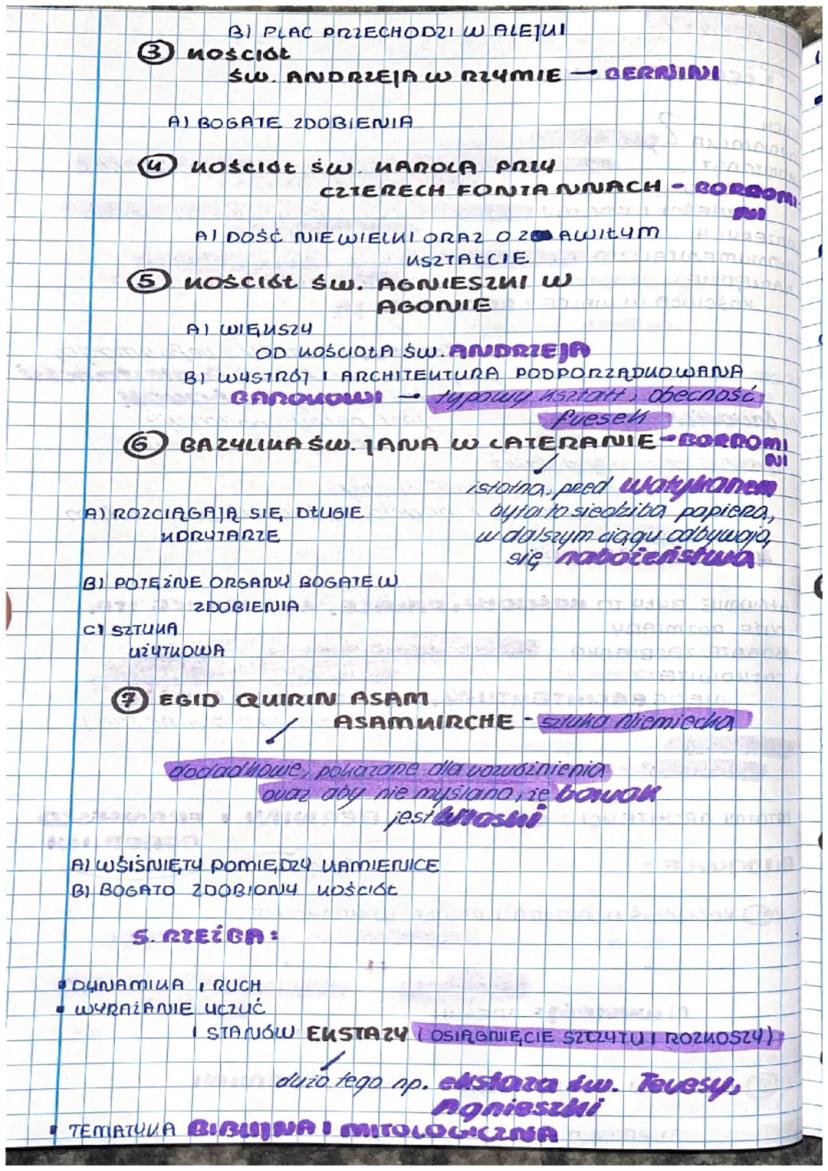 B) PLAC PRZECHODZI W ALEJKI
③ KOŚCIÓŁ
ŚW. ANDRZEJA W RZYMIE → BERNINI
A) BOGATE ZDOBIENIA
④ KOŚCIÓŁ ŚW. KAROLA PRZY
CZTERECH FONTANNACH - BORROMI
NI
A) DOŚĆ NIEWIELKI ORAZ O Z AWIŁYM
KSZTAŁCIE
⑤ KOŚCIÓŁ ŚW. AGNIESZKI W
AGONIE
A) WIĘKSZY
OD KOŚCIOŁA ŚW. ANDRZEJA
B) WYSTRÓJ I ARCHITEKTURA PODPORZĄDKOWANA
BAROKOWI → typowy kształt, obecność
fresek
⑥ BAZYLIKA ŚW. JANA W LATERANIE - BORROMI
NI
istotna, przed Watykanem
A) ROZCIĄGAJĄ SIĘ DŁUGIE
była to siedziba papieża,
KORYTARZE
w dalszym ciągu odbywają
się nabożeństwa
B) POTĘŻNE ORGANY BOGATE W
ZDOBIENIA
C) SZTUKA
UŻYTKOWA
⑦ EGID QUIRIN ASAM
ASAMKIRCHE - sztuka niemiecka
dodadkowe, pokazane dla urozróżnienia
oraz aby nie myślano, że barok
jest włoski
A) WŚIŚNIĘTY POMIĘDZY KAMIENICE
B) BOGATO ZDOBIONY KOŚCIÓŁ
5. RZEŹBA:
• DYNAMIKA I RUCH
• WYRAŻANIE UCZUĆ
I STANÓW EKSTAZY (OSIĄGNIĘCIE SZCZYTU I ROZKOSZY)
dużo tego np. ekstaza św. Teresy,
Agnieszki
• TEMATYKA BIBLIJNA I MITOLOGICZNA